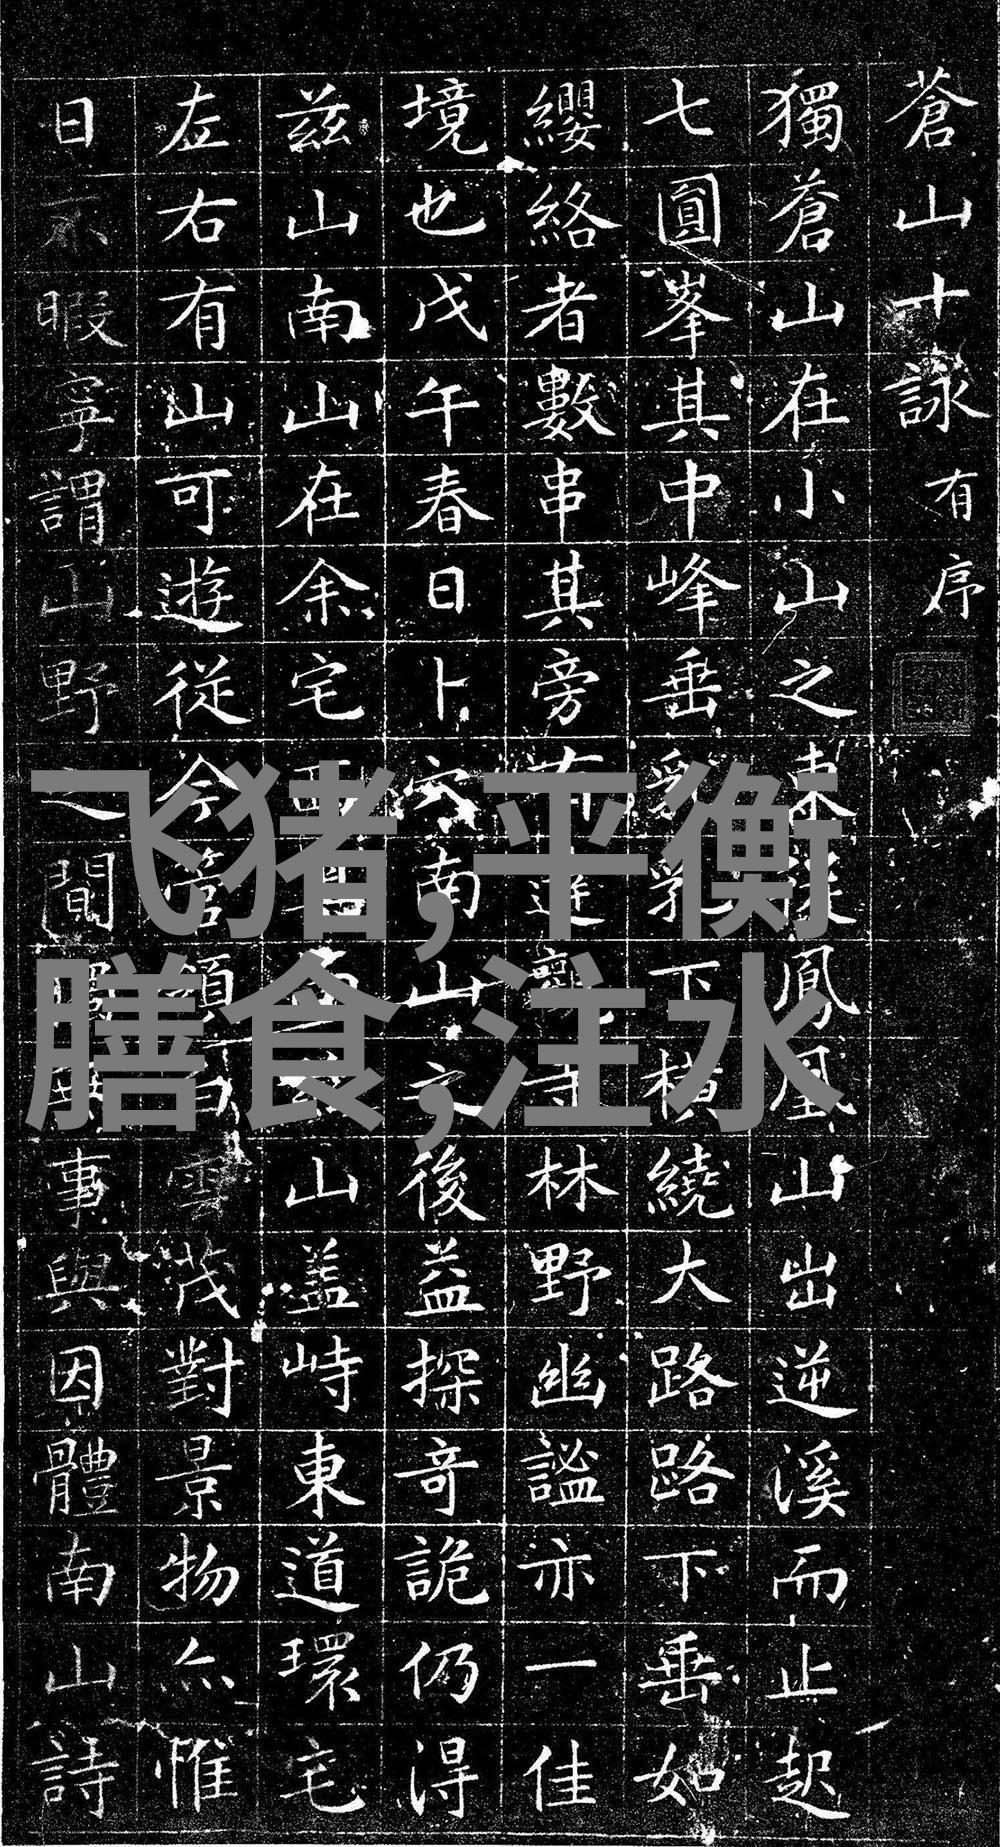 蒼山十詠有序
獨蒼山在小山之東 鳳凰山出逆溪而止起
七圓峯其中峰垂 乳下橫繞大路路下垂如
纓絡者數串其旁 寺林野幽謐亦一佳
境也戊午春日卜 南山之後益探奇詭仍得
茲山南山在余宅 山蓋峙東道環宅
左右有山可遊從今管領白雲茂對景物亦惟
日不暇寧謂山野之間 事與因體南山詩
飞猪,平衡
膳食,注水